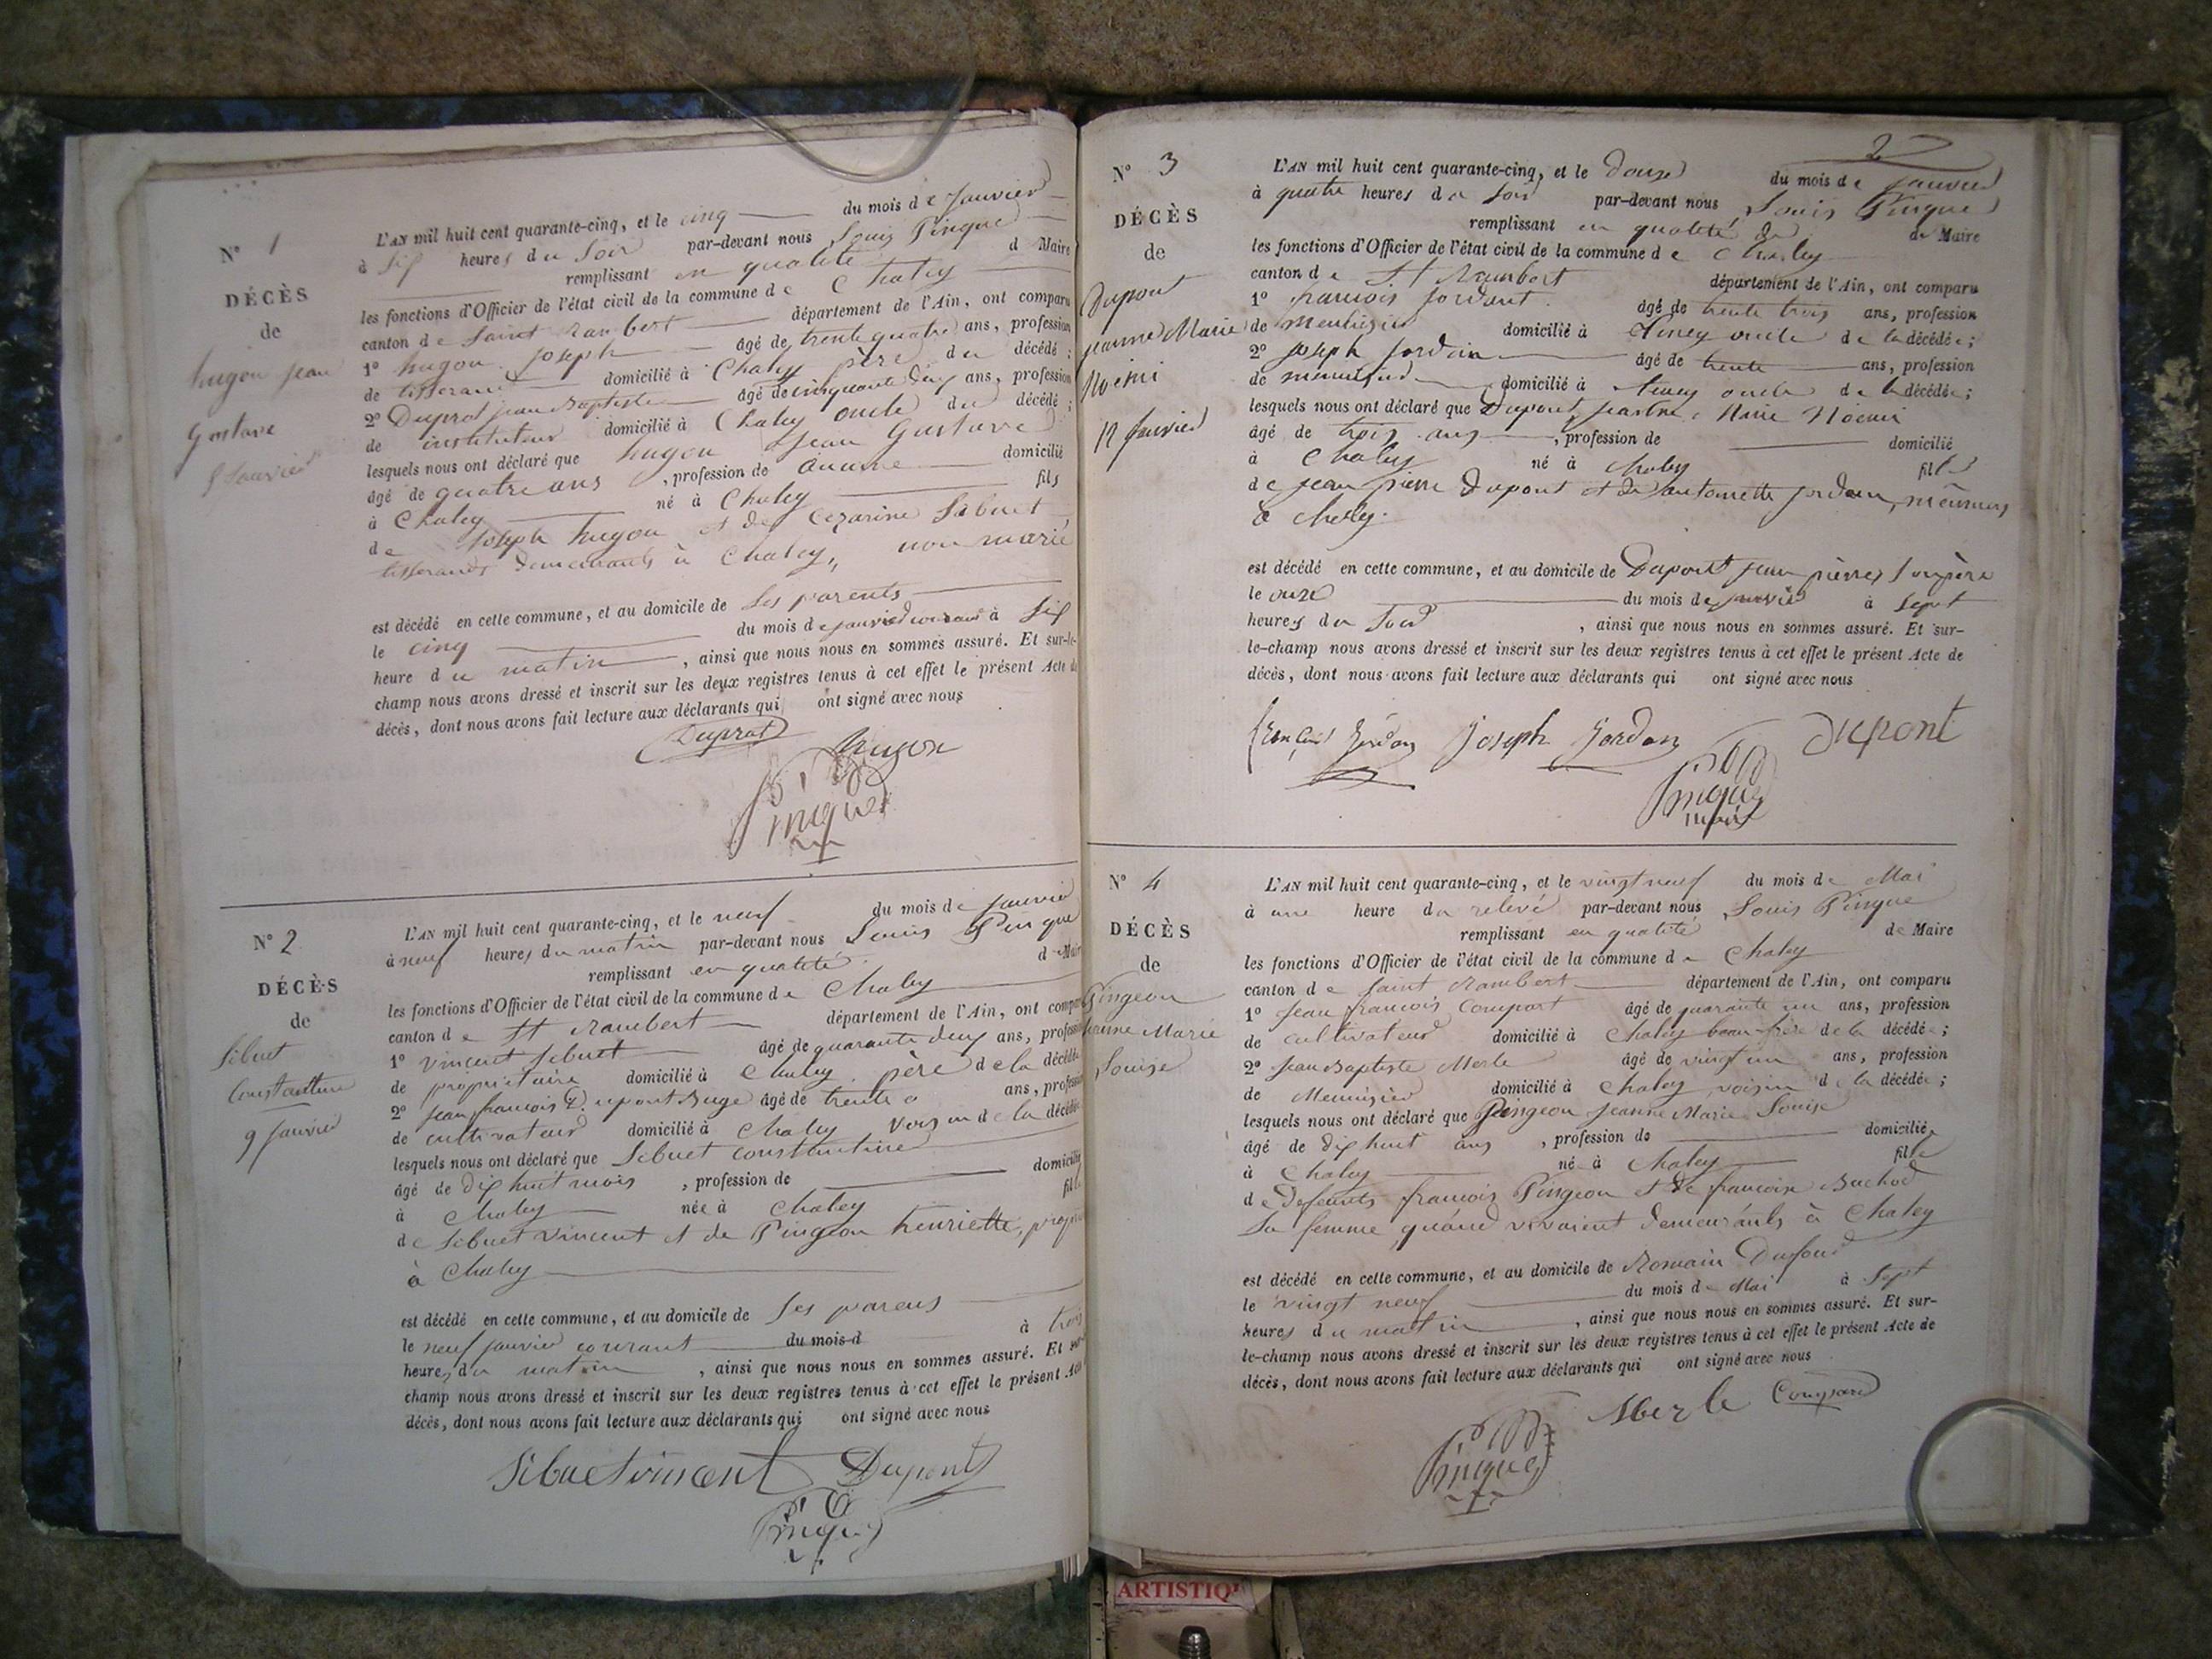 N° 1
DÉCÈS
de
hugon jean
Gustave
5 Janvier
L'AN mil huit cent quarante-cinq, et le cinq du mois de Janvier
à Six heures du Soir par-devant nous Louis Pingue
remplissant en qualité d Maire
les fonctions d'Officier de l'état civil de la commune de Chaley
canton de Saint Rambert département de l'Ain, ont comparu
1° hugon joseph âgé de trente quatre ans, profession
de tisserand domicilié à Chaley père du décédé ;
2° Duprat jean Baptiste âgé de cinquante deux ans, profession
de instituteur domicilié à Chaley oncle du décédé ;
lesquels nous ont déclaré que hugon Jean Gustave
âgé de quatre ans , profession de aucune domicilié
à Chaley né à Chaley fils
de Joseph hugon et de Cezarine Sibuet
tisserands demeurants à Chaley, non marié
est décédé en cette commune, et au domicile de Ses parents
le cinq du mois de janvier courant à Six
heure du matin , ainsi que nous nous en sommes assuré. Et sur-le-
champ nous avons dressé et inscrit sur les deux registres tenus à cet effet le présent Acte de
décès, dont nous avons fait lecture aux déclarants qui ont signé avec nous
Duprat
hugon
Pingue
N° 2
DÉCÈS
de
Sibuet
Constantine
9 Janvier
L'AN mil huit cent quarante-cinq, et le neuf du mois de Janvier
à neuf heures du matin par-devant nous Louis Pingue
remplissant en qualité d Maire
les fonctions d'Officier de l'état civil de la commune de Chaley
canton de St Rambert département de l'Ain, ont comparu
1° Vincent Sibuet âgé de quarante deux ans, profession
de propriétaire domicilié à Chaley père de la décédée
2° Jean françois Dupont Buge âgé de trente ans, profession
de cultivateur domicilié à Chaley Voisin de la décédée
lesquels nous ont déclaré que Sibuet constantine
âgé de dix huit mois , profession de domicilié
à Chaley née à Chaley fille
de Sibuet Vincent et de Pingeon henriette,
à Chaley
est décédé en cette commune, et au domicile de Ses parens
le neuf janvier courant du mois d à trois
heures du matin , ainsi que nous nous en sommes assuré. Et sur
champ nous avons dressé et inscrit sur les deux registres tenus à cet effet le présent Acte
décès, dont nous avons fait lecture aux déclarants qui ont signé avec nous
Sibuet vincent Dupont
Pingue
2
N° 3
DÉCÈS
de
Dupont
jeanne Marie
Noémi
12 Janvier
L'AN mil huit cent quarante-cinq, et le Douze du mois de Janvier
à quatre heures du Soir par-devant nous Louis Pingue
remplissant en qualité de de Maire
les fonctions d'Officier de l'état civil de la commune de Chaley
canton de St Rambert département de l'Ain, ont comparu
1° françois Jordant âgé de trente trois ans, profession
de Menuisier domicilié à oncle de la décédée ;
2° Joseph Jordain âgé de trente ans, profession
de domicilié à oncle de la décédée ;
lesquels nous ont déclaré que Dupont jeanne Marie Noémi
âgé de trois ans , profession de domicilié
à Chaley né à Chaley fille
de jean pierre Dupont et de antoinette jordan,
à Chaley.
est décédé en cette commune, et au domicile de Dupont jean pierre, Son père
le onze du mois de janvier à Sept
heures du Soir , ainsi que nous nous en sommes assuré. Et sur-
le-champ nous avons dressé et inscrit sur les deux registres tenus à cet effet le présent Acte de
décès, dont nous avons fait lecture aux déclarants qui ont signé avec nous
françois Jordan Joseph Jordan Dupont
Pingue
maire
N° 4
DÉCÈS
de
Pingeon
Jeanne Marie
Louise
L'AN mil huit cent quarante-cinq, et le vingt neuf du mois de Mai
à une heure du relevé par-devant nous Louis Pingue
remplissant en qualité de Maire
les fonctions d'Officier de l'état civil de la commune de Chaley
canton de Saint Rambert département de l'Ain, ont comparu
1° Jean françois âgé de quarante un ans, profession
de cultivateur domicilié à Chaley beau-frère de la décédée ;
2° Jean Baptiste Merle âgé de vingt un ans, profession
de Menuisier domicilié à Chaley, voisin de la décédée ;
lesquels nous ont déclaré que Pingeon Jeanne Marie Louise
âgé de dix huit ans , profession de domiciliée
à Chaley né à Chaley fille
de Defeunts françois Pingeon et de françoise Buchod
Sa femme, quand vivaient demeurants à Chaley
est décédé en cette commune, et au domicile de Romain Dufour
le vingt neuf du mois de Mai à Sept
heures du matin , ainsi que nous nous en sommes assuré. Et sur-
le-champ nous avons dressé et inscrit sur les deux registres tenus à cet effet le présent Acte de
décès, dont nous avons fait lecture aux déclarants qui ont signé avec nous
Merle
Pingue
ARTISTIQ'